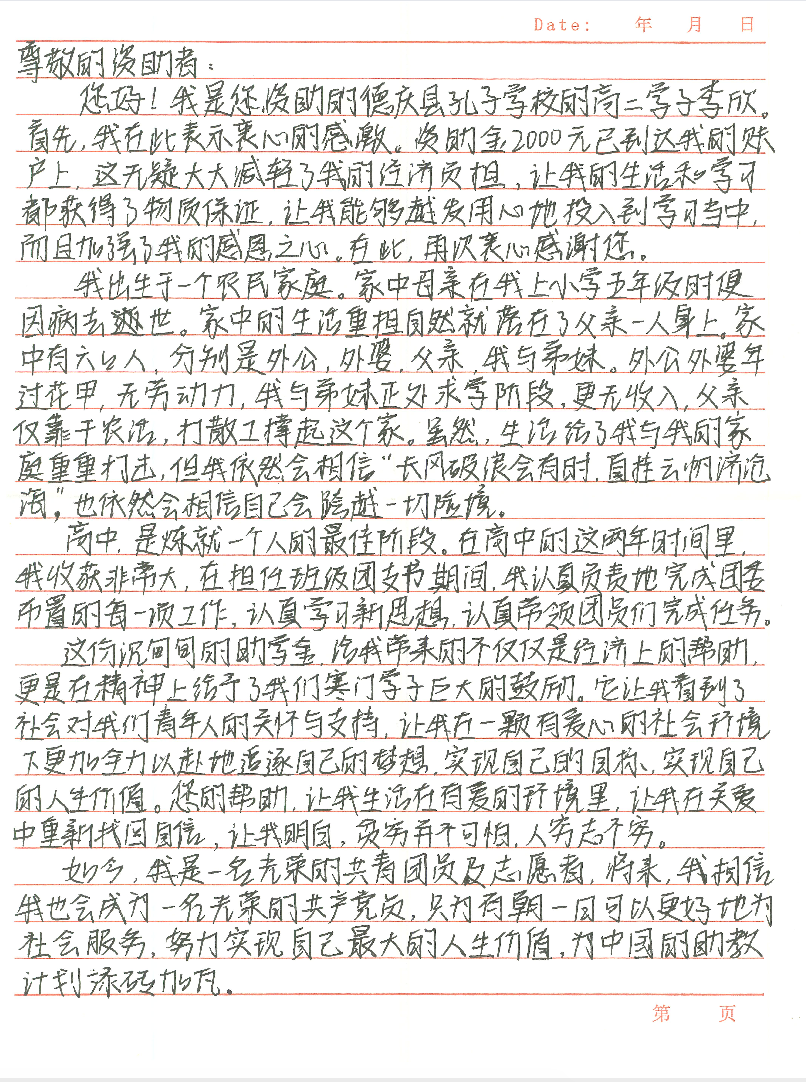 Date:  年 月 日
尊敬的资助者：
您好！我是您资助的德庆县孔子学校的高二学子李欣。
首先，我在此表示衷心的感激。资助金2000元已到达我的账
户上，这无疑大大减轻了我的经济负担，让我的生活和学习
都获得了物质保证，让我能够越发用心地投入到学习当中，
而且加强了我的感恩之心。在此，再次衷心感谢您。
我出生于一个农民家庭。家中母亲在我上小学五年级时便
因病去逝世。家中的生活重担自然就落在了父亲一人身上。家
中有六口人，分别是外公，外婆，父亲，我与弟妹。外公外婆年
过花甲，无劳动力，我与弟妹正处求学阶段，更无收入，父亲
仅靠干农活，打散工撑起这个家。虽然，生活给了我与我的家
庭重重打击，但我依然会相信“长风破浪会有时，直挂云帆济沧
海”，也依然会相信自己会跨越一切险境。
高中，是炼就一个人的最佳阶段。在高中的这两年时间里，
我收获非常大，在担任班级团支书期间，我认真负责地完成团委
布置的每一项工作，认真学习新思想，认真带领团员们完成任务。
这份沉甸甸的助学金，给我带来的不仅仅是经济上的帮助，
更是在精神上给予了我们寒门学子巨大的鼓励。它让我看到了
社会对我们青年人的关怀与支持，让我在一颗有爱心的社会环境
下更加全力以赴地追逐自己的梦想，实现自己的目标，实现自己
的人生价值。您的帮助，让我生活在有爱的环境里，让我在关爱
中重新找回自信，让我明白，贫穷并不可怕，人穷志不穷。
如今，我是一名光荣的共青团员及志愿者，将来，我相信
我也会成为一名光荣的共产党员，只为有朝一日可以更好地为
社会服务，努力实现自己最大的人生价值，为中国的助教
计划添砖加瓦。
第 页